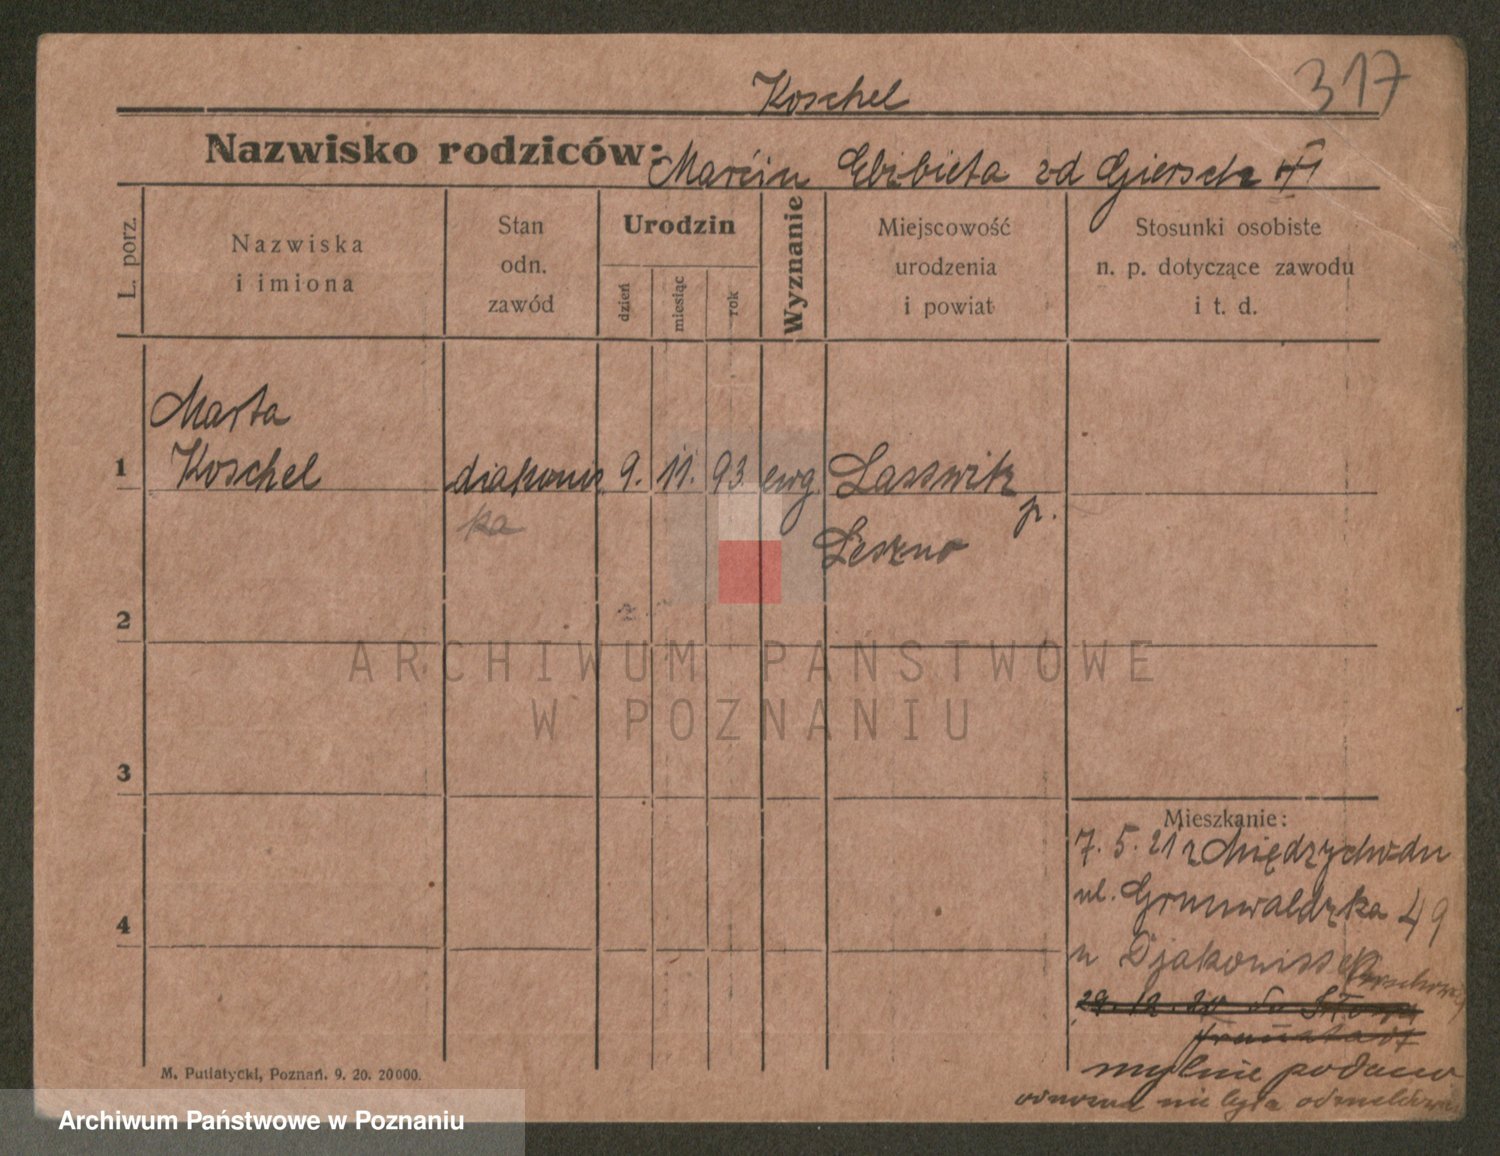 317
Koschel
Nazwisko rodziców: Marcin Elżbieta zd Giersch
L. porz.
Nazwiska
i imiona
Stan
odn.
zawód
Urodzin
dzień
miesiąc
rok
Wyznanie
Miejscowość
urodzenia
i powiat
Stosunki osobiste
n. p. dotyczące zawodu
i t. d.
Marta
1 Koschel diakonis 9. 11. 93 ewg. Lasswik p.
ka Leszno
2
ARCHIWUM PAŃSTWOWE
W POZNANIU
3
Mieszkanie:
7. 5. 21 z Międzychodu
ul. Grunwaldzka 49
4
u Djakonissek
29. 12. 20
mylnie podano
odnośna nie była odmeldow
M. Putiatycki, Poznań. 9. 20. 20000.
Archiwum Państwowe w Poznaniu